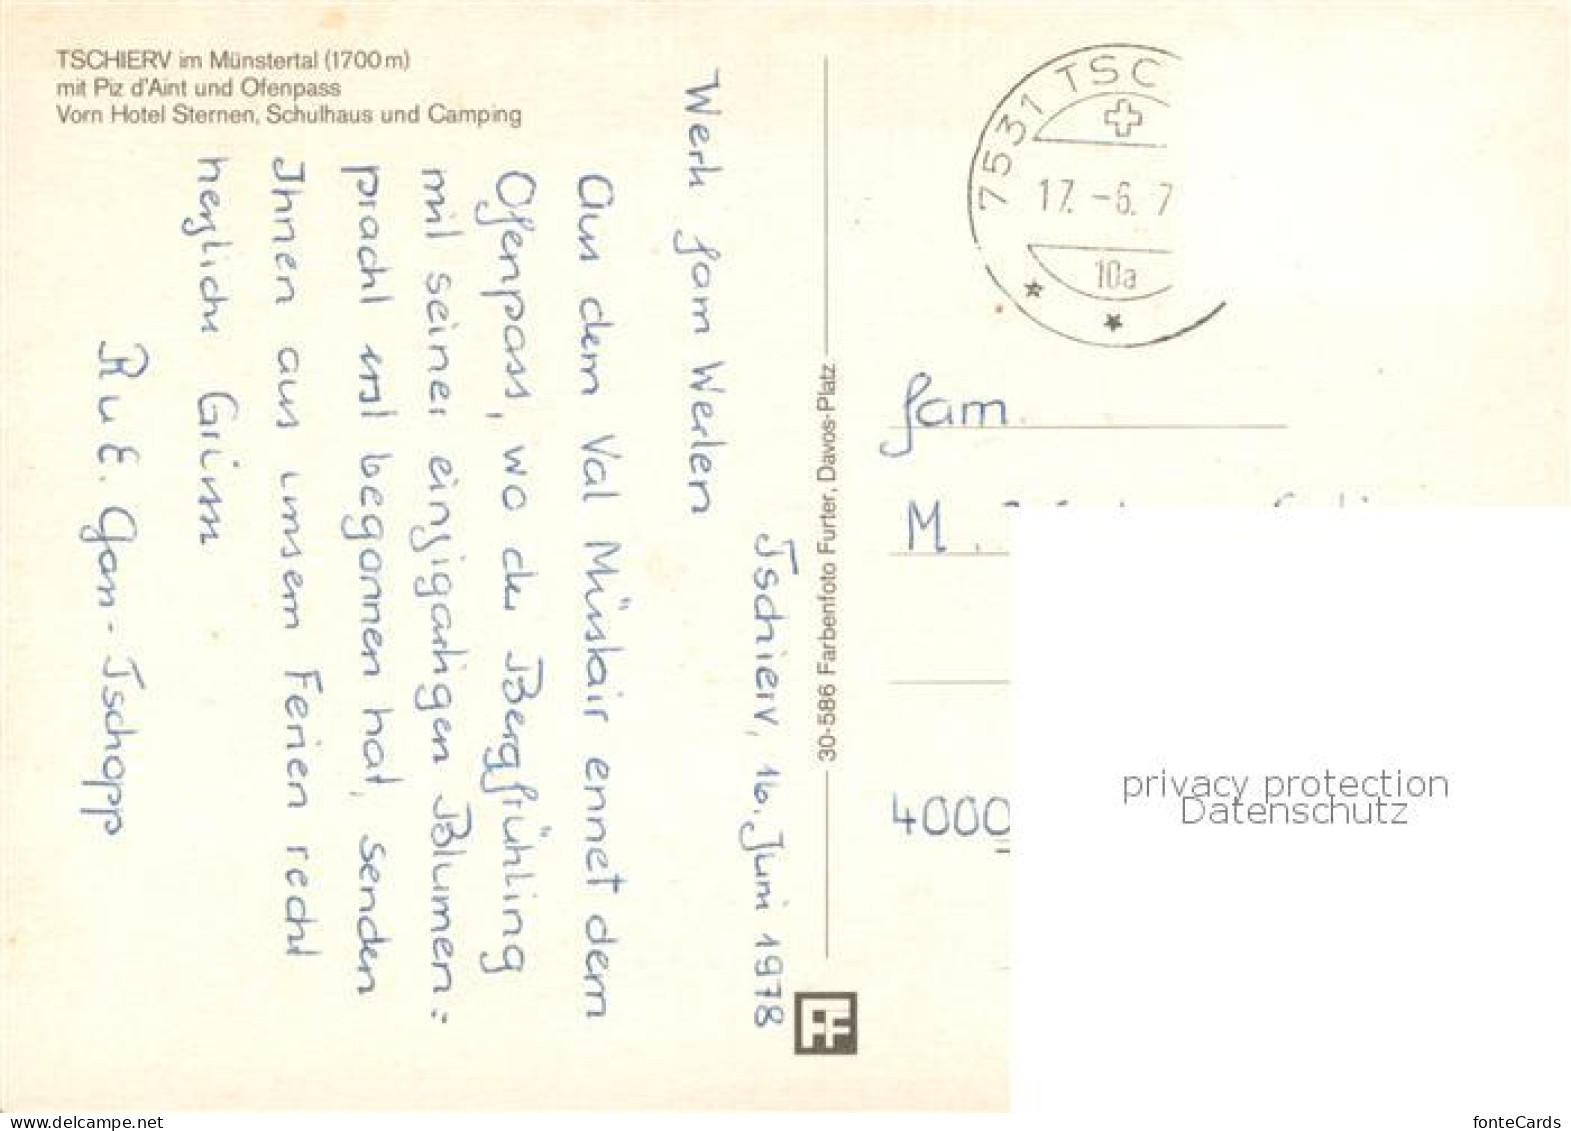 TSCHIERV im Münstertal (1700 m)
mit Piz d'Aint und Ofenpass
Vorn Hotel Sternen, Schulhaus und Camping
Tschierv, 16. Juni 1978
Werh fam Werlen
Aus dem Val Müstair ennet dem
Ofenpass, wo der Bergfrühling
mit seiner einzigartigen Blumen=
pracht erst begonnen hat, senden
Ihnen aus unsern Ferien recht
herzliche Grüsse
R u E. Gan-Tschopp
30-586 Farbenfoto Furter, Davos-Platz
FF
7531 TSC
17. -6. 7
10a
fam.
M.
4000
privacy protection
Datenschutz
www.delcampe.net
fonteCards